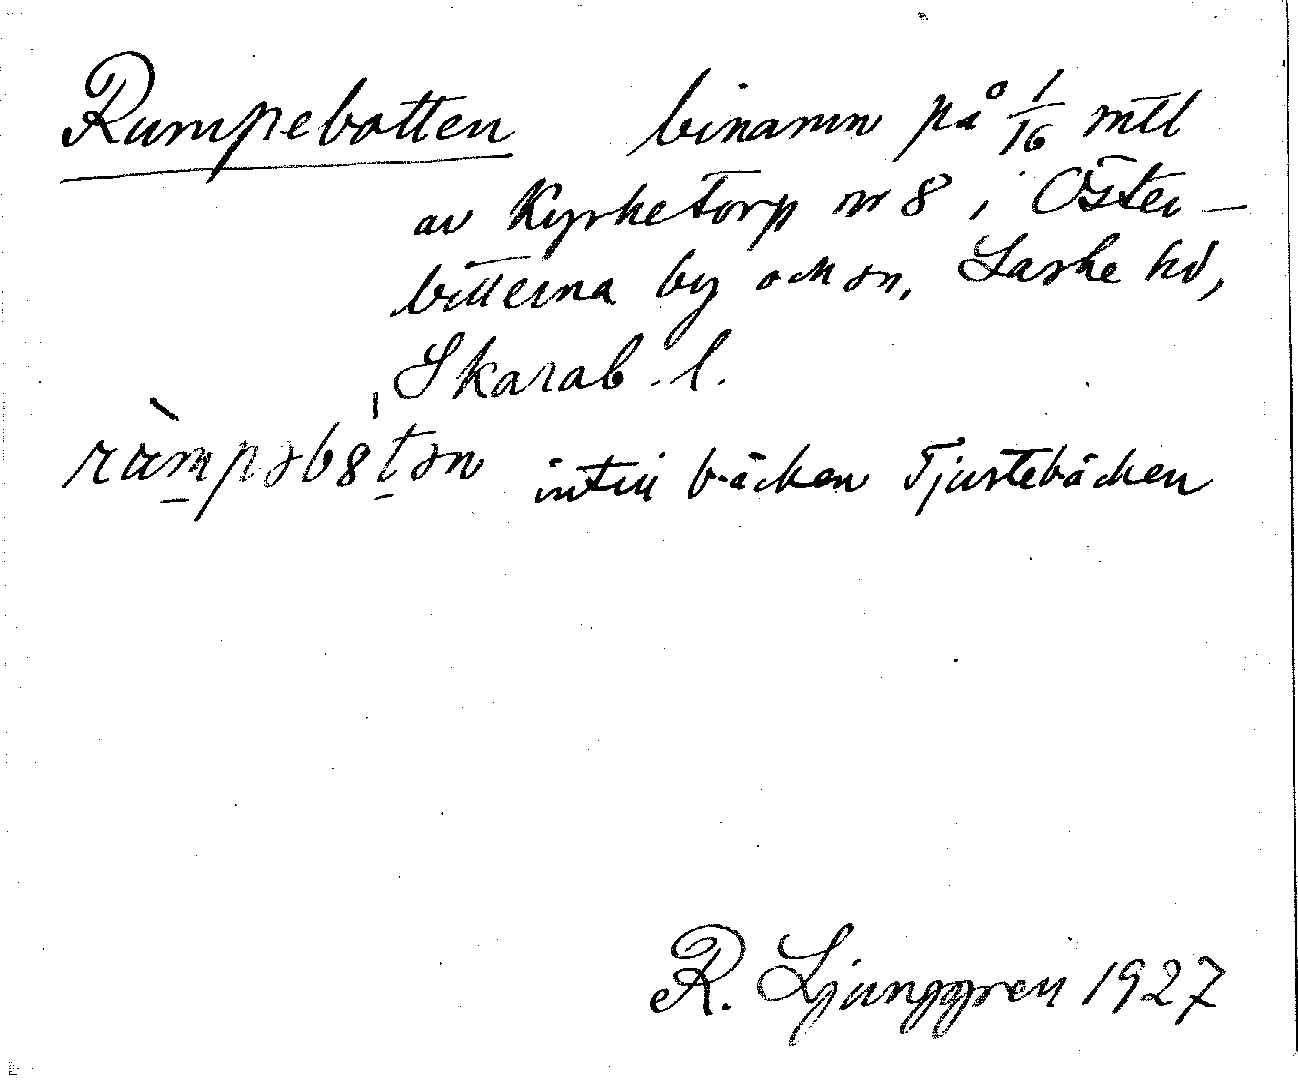 Rumpebotten binamn på 1/16 mtl
av Kyrketorp nr 8 i Öster-
bitterna by och sn, Laske hd,
Skarab. l.
ràmpəb8tən intill bäcken Tjustebäcken
R. Ljunggren 1927